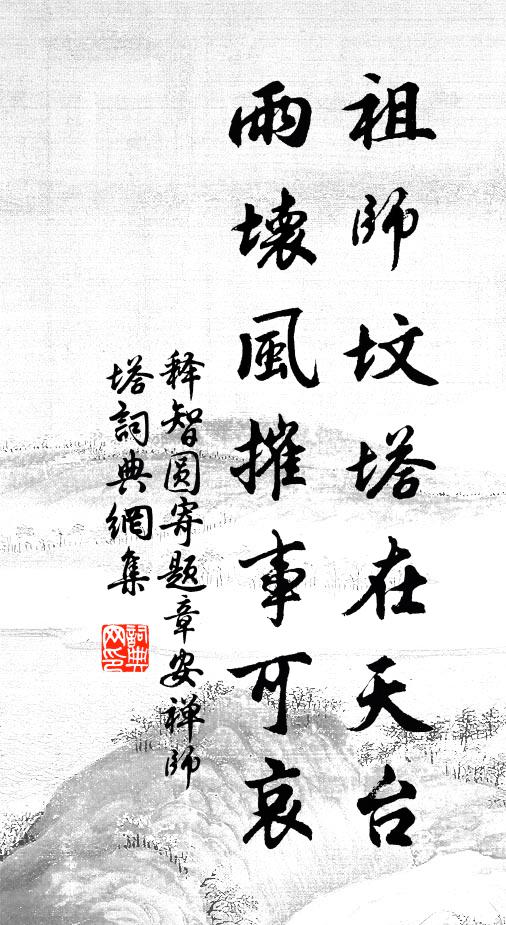 祖師坟塔在天台
雨壊風摧事可哀
释智圆寄题章安禅師
塔詞典網集
詞典网印